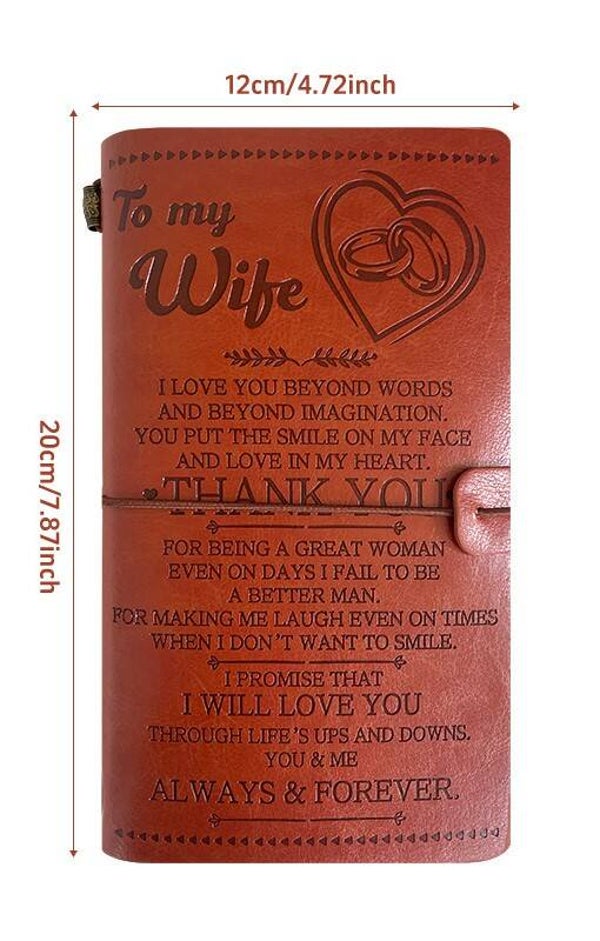 12cm/4.72inch
20cm/7.87inch
To my
Wife
I LOVE YOU BEYOND WORDS
AND BEYOND IMAGINATION.
YOU PUT THE SMILE ON MY FACE
AND LOVE IN MY HEART.
THANK YOU
FOR BEING A GREAT WOMAN
EVEN ON DAYS I FAIL TO BE
A BETTER MAN.
FOR MAKING ME LAUGH EVEN ON TIMES
WHEN I DON'T WANT TO SMILE.
I PROMISE THAT
I WILL LOVE YOU
THROUGH LIFE'S UPS AND DOWNS.
YOU & ME
ALWAYS & FOREVER.